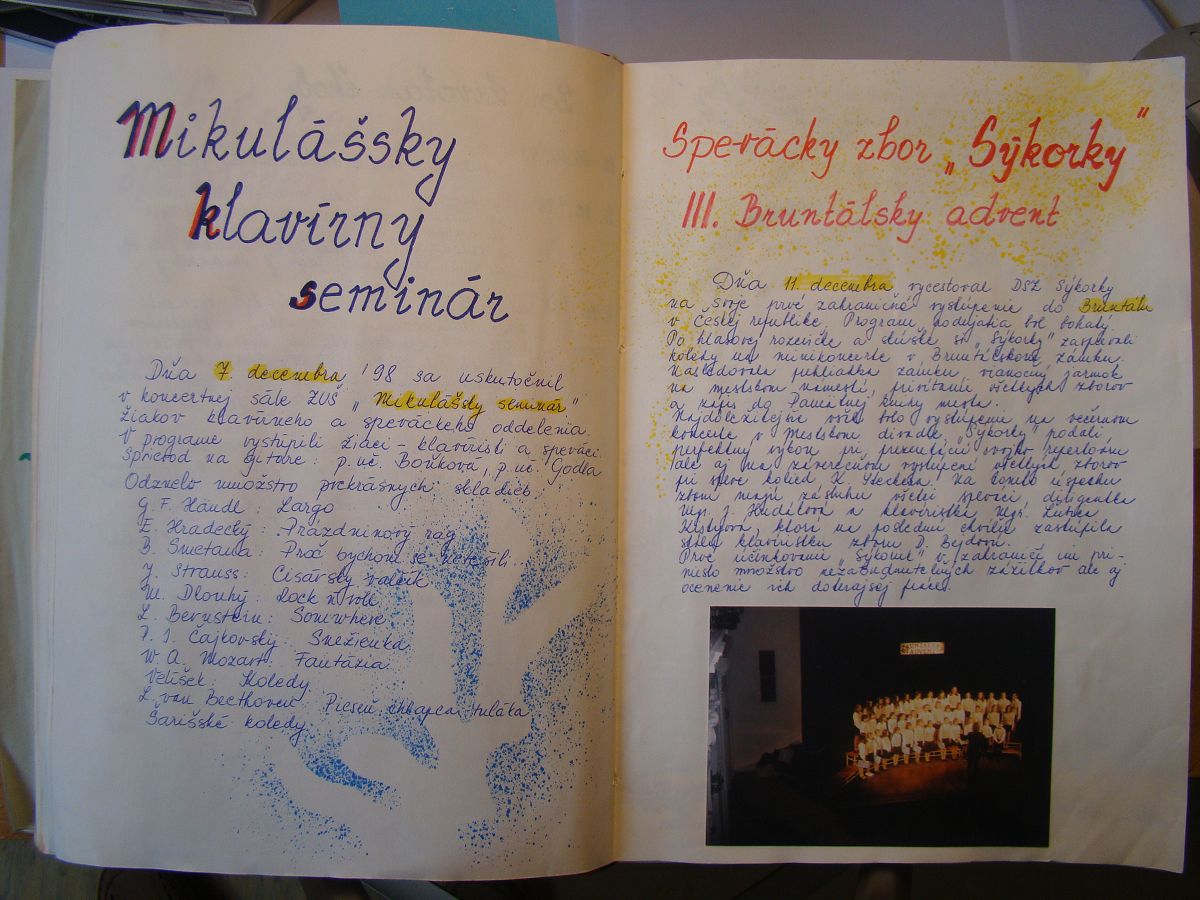 Mikulášsky
klavírny
seminár
Dňa 7. decembra '98 sa uskutočnil
v koncertnej sále ZUŠ „Mikulášsky seminár"
žiakov klavírneho a speváckeho oddelenia.
V programe vystúpili žiaci - klavíristi a speváci.
Sprievod na gitare: p. uč. Boňková, p. uč. Godla
Odznelo množstvo prekrásnych skladieb
G. F. Händl: Largo
E. Hradecký: Prázdninový rag
B. Smetana: Proč bychom se netěšili
J. Strauss: Cisársky valčík
M. Dlouhý: Rock'n roll
L. Bernstein: Somwhere
P. I. Čajkovský: Snežienka
W. A. Mozart: Fantázia
Velíšek: Koledy
L. van Beethoven: Pieseň chlapca tuláka
Šarišské koledy
Spevácky zbor „Sýkorky"
III. Bruntálsky advent
Dňa 11. decembra vycestoval DSZ Sýkorky
na svoje prvé zahraničné vystúpenie do Bruntálu
v Českej republike. Program podujatia bol bohatý.
Po hlasovej rozcvičke a skúške si „Sýkorky" zaspievali
koledy na minikoncerte v Bruntálskom zámku.
Nasledovala prehliadka zámku, vianočný jarmok
na mestskom námestí, privítanie všetkých zborov
a zápis do Pamätnej knihy mesta.
Najdôležitejšie však bolo vystúpenie na večernom
koncerte v Mestskom divadle. „Sýkorky" podali
perfektný výkon pri prezentácii svojho repertoáru
ale aj na záverečnom vystúpení všetkých zborov
pri speve kolied K. Steckera. Na úspechu
zboru majú zásluhu všetci speváci, dirigentka
J. Hudáková a klaviristka
ktorá na poslednú chvíľu zastúpila
klaviristku zboru D. Bejdovú.
Prvé účinkovanie „Sýkoriek" v zahraničí im pri-
nieslo množstvo nezabudnuteľných zážitkov ale aj
ocenenie ich doterajšej práce.